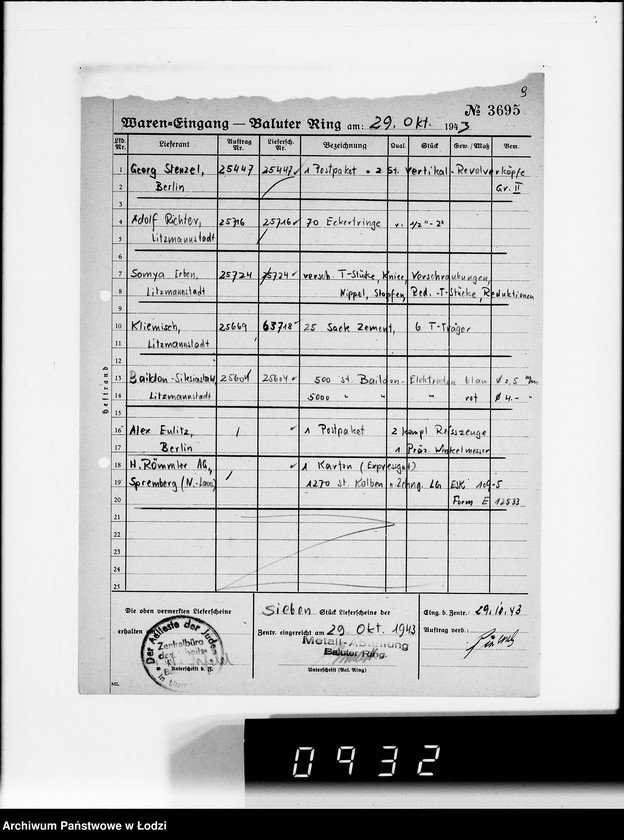 9
№ 3695
Waren=Eingang — Baluter Ring am: 29. Okt. 1943
Lfd. Nr. Lieferant Auftrag Nr. Liefersch. Nr. Bezeichnung Qual. Stück Gew./Maß Bem.
1 Georg Stenzel, 25447 25447 1 Postpaket = 2 St. Vertikal-Revolverköpfe
2 Berlin Gr. II
3
4 Adolf Richter, 25716 25716 70 Eckertringe v. 1/2" - 2"
5 Litzmannstadt
6
7 Somya Erben, 25724 25724 versch. T-Stücke, Kniee, Verschraubungen,
8 Litzmannstadt Nippel, Stopfen, Red.-T-Stücke, Reduktionen
9
10 Kliemisch, 25669 63718 25 Sack Zement, 6 T-Träger
11 Litzmannstadt
12
13 Baildon-Silesiastahl 25604 25604 500 St. Baildon-Elektroden blau ø 0,5 m/m
14 Litzmannstadt 5000 " " " rot ø 4.- "
15
16 Alex Eulitz, / 1 Postpaket 2 kompl Reisszeuge
17 Berlin 1 Präz. Winkelmesser
18 H. Römmler AG, 1 Karton (Expressgut)
19 Spremberg (N.-Laus) / 1270 St. Kolben n. Zchng. LG ESK 109-5
20 Form E 12533
21
22
23
24
25
Heftrand
Die oben vermerkten Lieferscheine
erhalten
Sieben Stück Lieferscheine der
Zentr. eingereicht am 29 Okt. 1943
Metall-Abteilung
Baluter Ring.
Unterschrift (Bal. Ring)
Eing. b. Zentr.: 29.10.43
Auftrag verb.:
Der Aelteste der Juden
Zentralbüro
der
Unterschrift d.
in
ML.
0932
Archiwum Państwowe w Łodzi